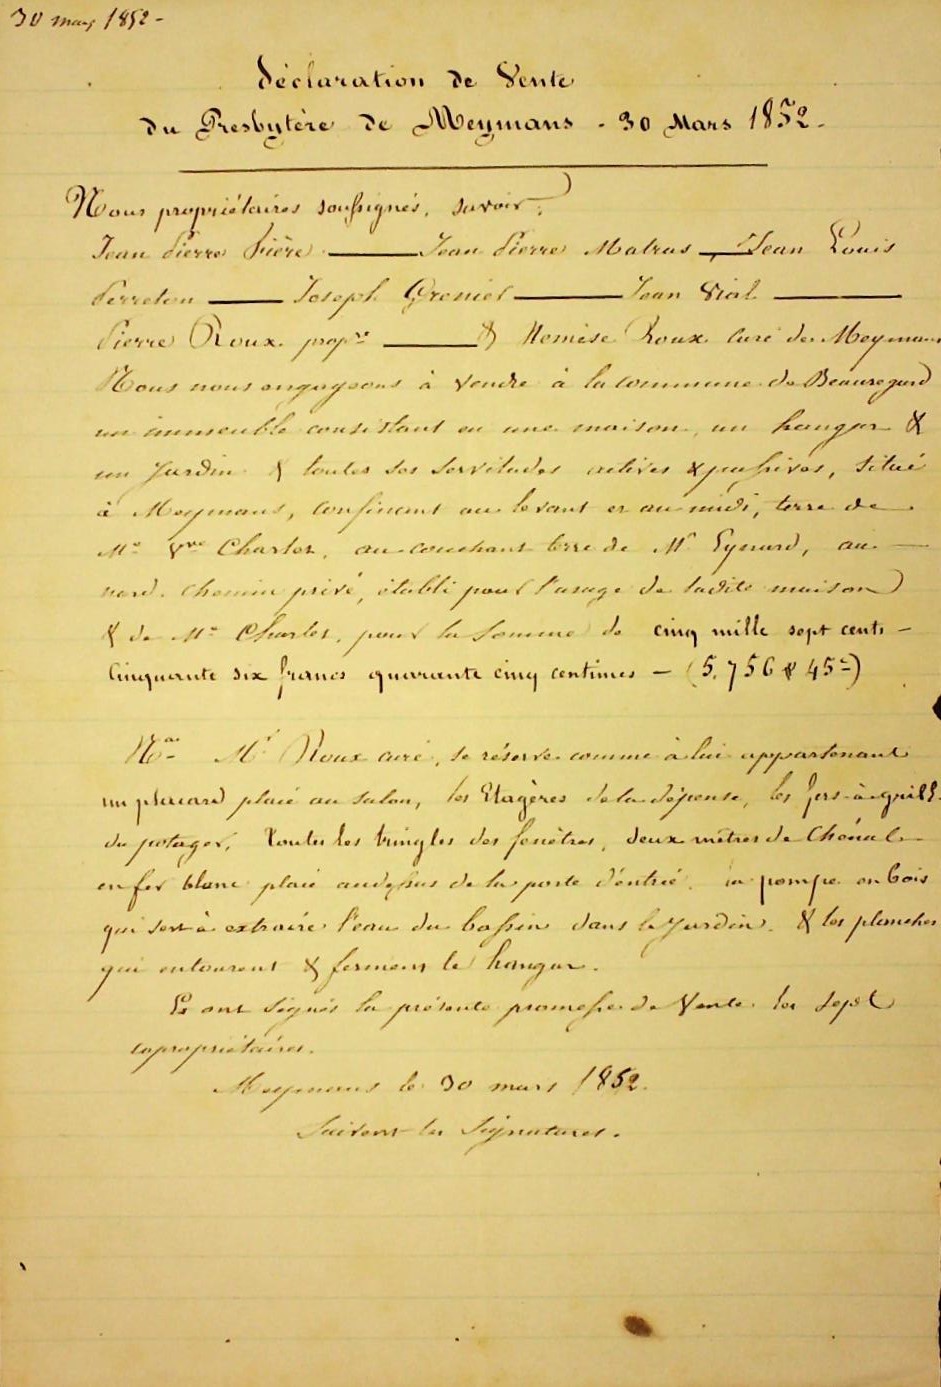 30 mars 1852 -
déclaration de Vente
du Presbytère de Meymans - 30 Mars 1852 -
Nous propriétaires soussignés, savoir :
Jean Pierre Fière — Jean Pierre Malras — Jean Louis
Perreton — Joseph Grenier — Jean Vial —
Pierre Roux propre — & Roux curé de Meymans
Nous nous engageons à vendre à la commune de Beauregard
un immeuble consistant en une maison, un hangar &
un Jardin & toutes ses servitudes actives & passives, situé
à Meymans, confinant au levant et au midi, terre de
Me Vve Charles, au couchant terre de Mr Eynard, au —
nord. chemin privé, établi pour l'usage de ladite maison
& de Me Charles, pour la somme de cinq mille sept cents -
Cinquante six francs quarante cinq centimes - (5,756 & 45c)
Na Mr Roux curé, se réserve comme à lui appartenant
un placard placé au salon, les Etagères de la dépense, les fers à grille
du potager, toutes les tringles des fenêtres, deux mètres de Chénal
en fer blanc placé audessus de la porte d'entrée. la pompe en bois
qui sert à extraire l'eau du bassin dans le Jardin. & les planches
qui entourent & ferment le hangar.
Et ont signés la présente promesse de Vente les sept
copropriétaires.
Meymans le 30 mars 1852.
Suivent les Signatures.